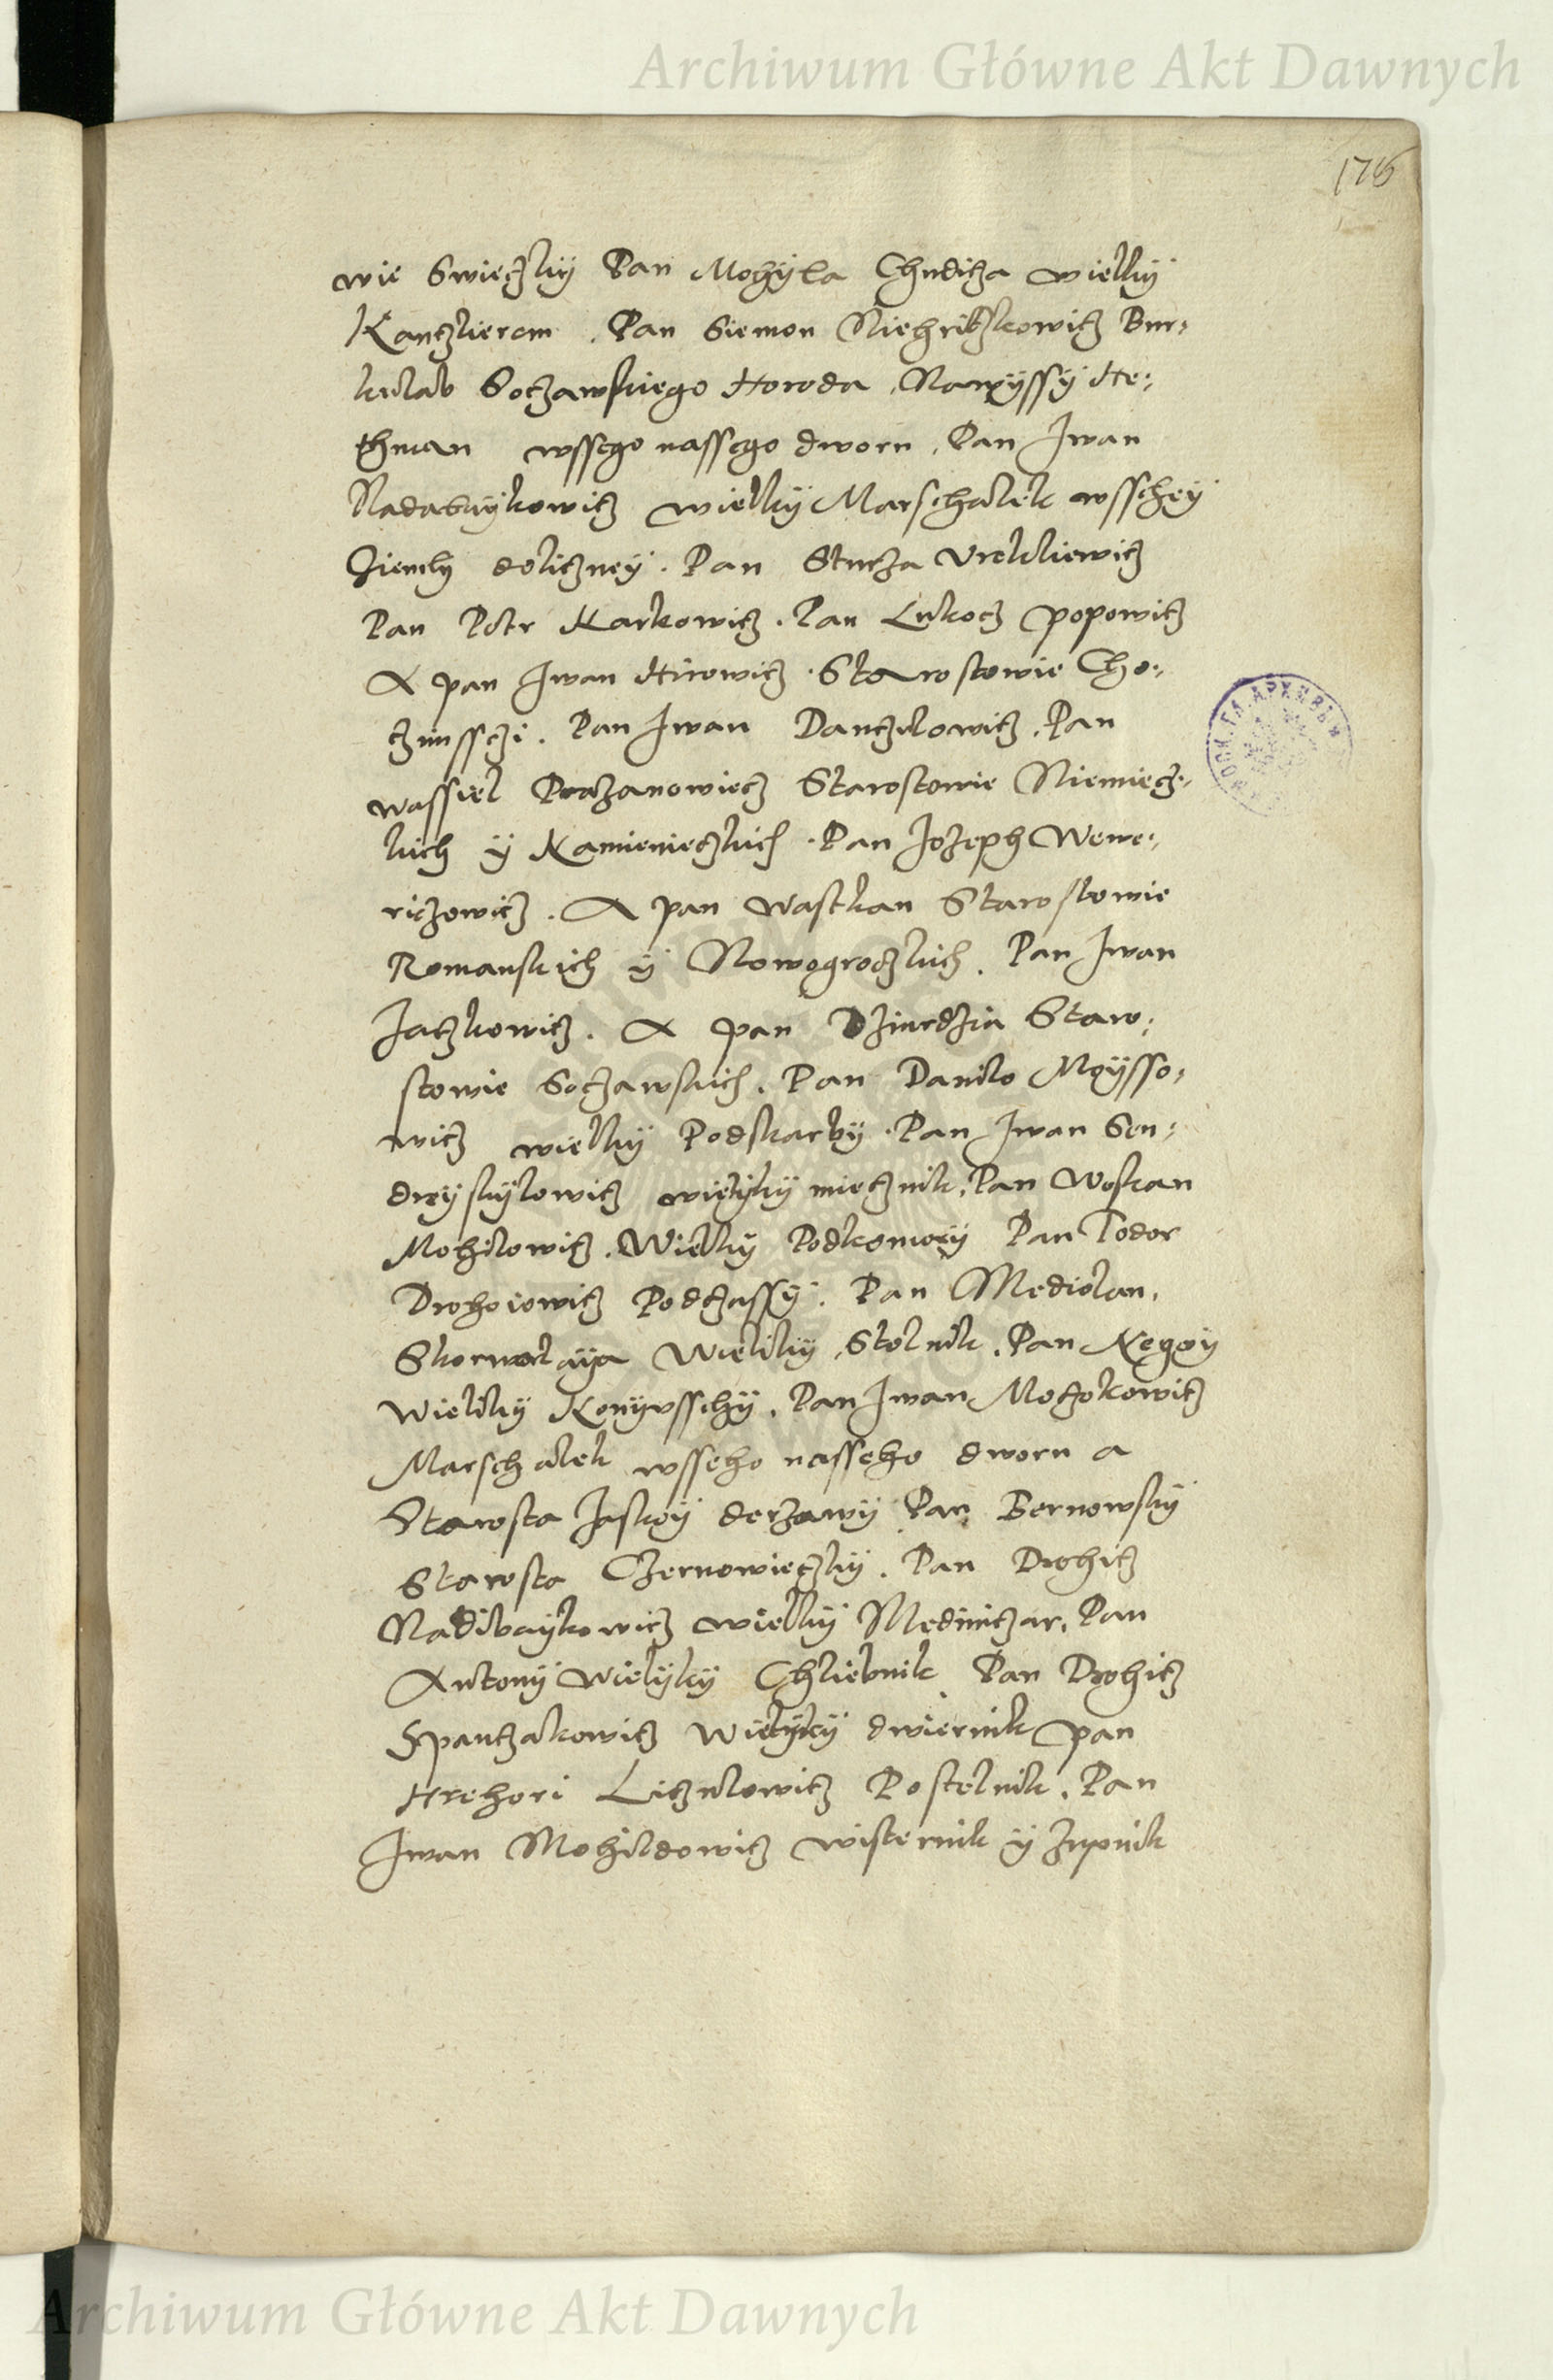 Archiwum Główne Akt Dawnych
176
wie Swieczky Pan Mogÿla Chudicza wielkÿ
Kanczlierem . Pan Siemon Niehritzkowicz Bur-
kulab Soczawskiego Horoda , Nawÿssÿ He-
thman wssego nassego dworu , Pan Iwan
Nadabÿkowicz wielkÿ Marschalek wsscheÿ
Ziemlÿ doliczneÿ . Pan Sturza Vrekliewicz
Pan Petr Karkowicz . Pan Lukocz popowicz
A pan Iwan Hirowicz . Starostowie Cho-
czimssczi . Pan Iwan Danczulowicz . Pan
wassiel Prazanowiecz Starostowie Niemiecz-
kich ÿ Kamienieczkich . Pan Iozeph Wewe-
riczowicz . A pan wastkan Starostowie
Romanskich ÿ Nowogroczkich . Pan Iwan
Jaczkowicz . A pan Dziurdzia Staro-
stowie Soczawskich . Pan Danilo Moÿsso-
wicz wielkÿ Podskarbÿ . Pan Iwan Sen-
dreÿskÿlowicz wielÿkÿ miecznik , Pan Woskan
Mohilowicz . Wielkÿ Podkomorÿ Pan Todor
Drohoiowicz Podczassÿ . Pan Mediolan .
Wielikÿ Stolnik . Pan Negoÿ
Wielikÿ Konÿvsschÿ . Pan Iwan Moczokowicz
Marschalek wsseho nasseho dworu a
Starosta Jaskoÿ derzawÿ Pan Bernowskÿ
Starosta Czernowieczkÿ . Pan Drohicz
Nadibaÿkowicz wielkÿ Medniczar . Pan
Antonÿ Wielÿkÿ Chliebnik Pan Drohicz
Spanczakowicz Wielÿkÿ dwiernik pan
Hrehori Liczulowicz Postelnik . Pan
Iwan Mohildowicz wisternik ÿ Zupnik
Archiwum Główne Akt Dawnych